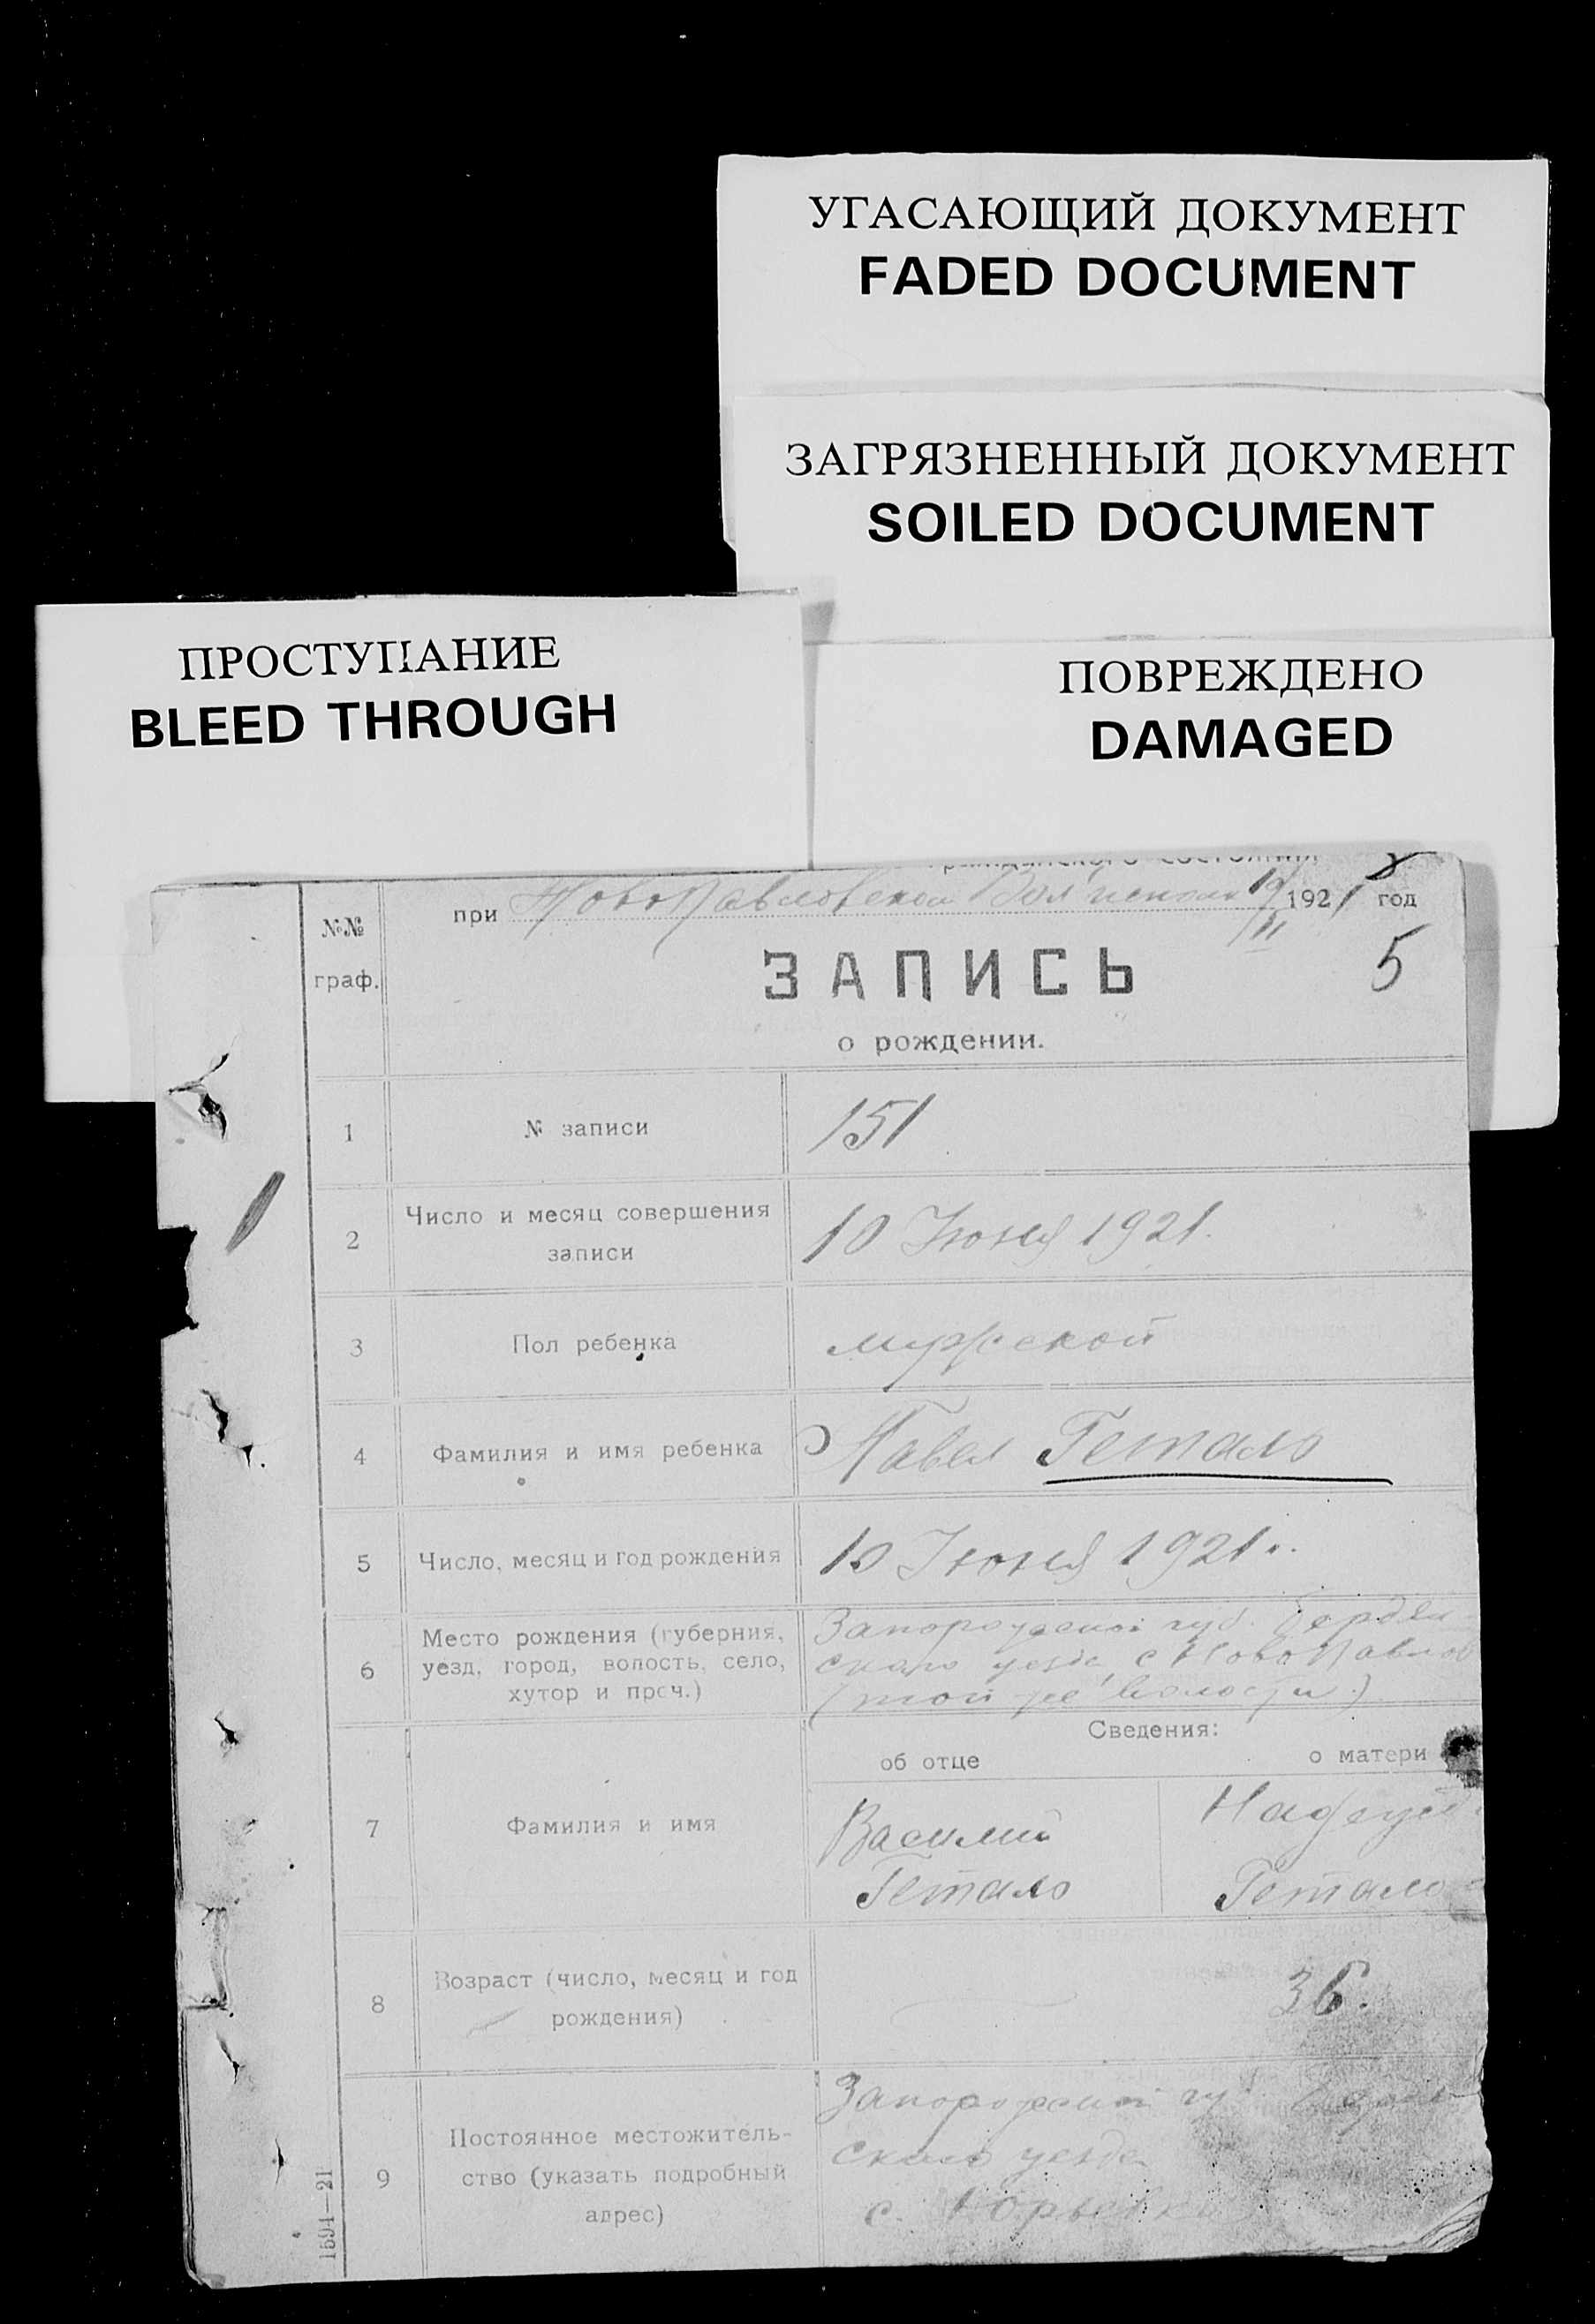 УГАСАЮЩИЙ ДОКУМЕНТ
FADED DOCUMENT
ЗАГРЯЗНЕННЫЙ ДОКУМЕНТ
SOILED DOCUMENT
ПРОСТУПАНИЕ
BLEED THROUGH
ПОВРЕЖДЕНО
DAMAGED
№№ граф.
при НовоПавловском 1921 год
ЗАПИСЬ
5
о рождении.
1 № записи 151
2 Число и месяц совершения
записи
10 Июня 1921.
3 Пол ребенка мужской
4 Фамилия и имя ребенка Павел Гетало
5 Число, месяц и год рождения 10 Июня 1921 г.
6 Место рождения (губерния,
уезд, город, волость, село,
хутор и проч.)
Запорожской губ. Бердян
скаго уезда, с НовоПавлов
(той же волости)
Сведения:
об отце о матери
7 Фамилия и имя
Василий
Гетало
Надежда
Гетало
8 Возраст (число, месяц и год
рождения)
36.
9 Постоянное местожитель-
ство (указать подробный
адрес)
Запорожской гу
скаго уезда
с. Юрьевка
1594—21